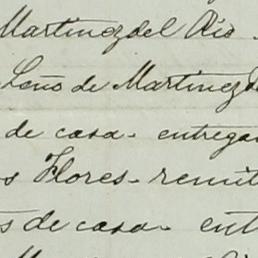 Martinez del Rio.
Leño de Martinez d
de casa - entrega
s Flores - remit
s de casa - ent